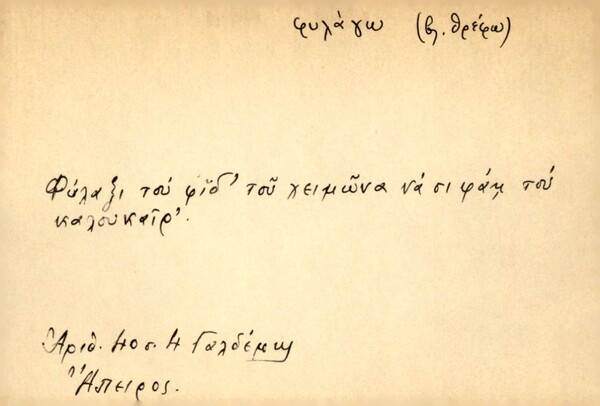 φυλάγω (βλ. θρέφω)
Φύλαξι τοὺ φῖδ' τοῦ χειμῶνα νά σι φάῃ τοὺ
καλουκαῖρ'.
Ἀριθ. 40 σ. 4 Γαλδέμης
Ἤπειρος.